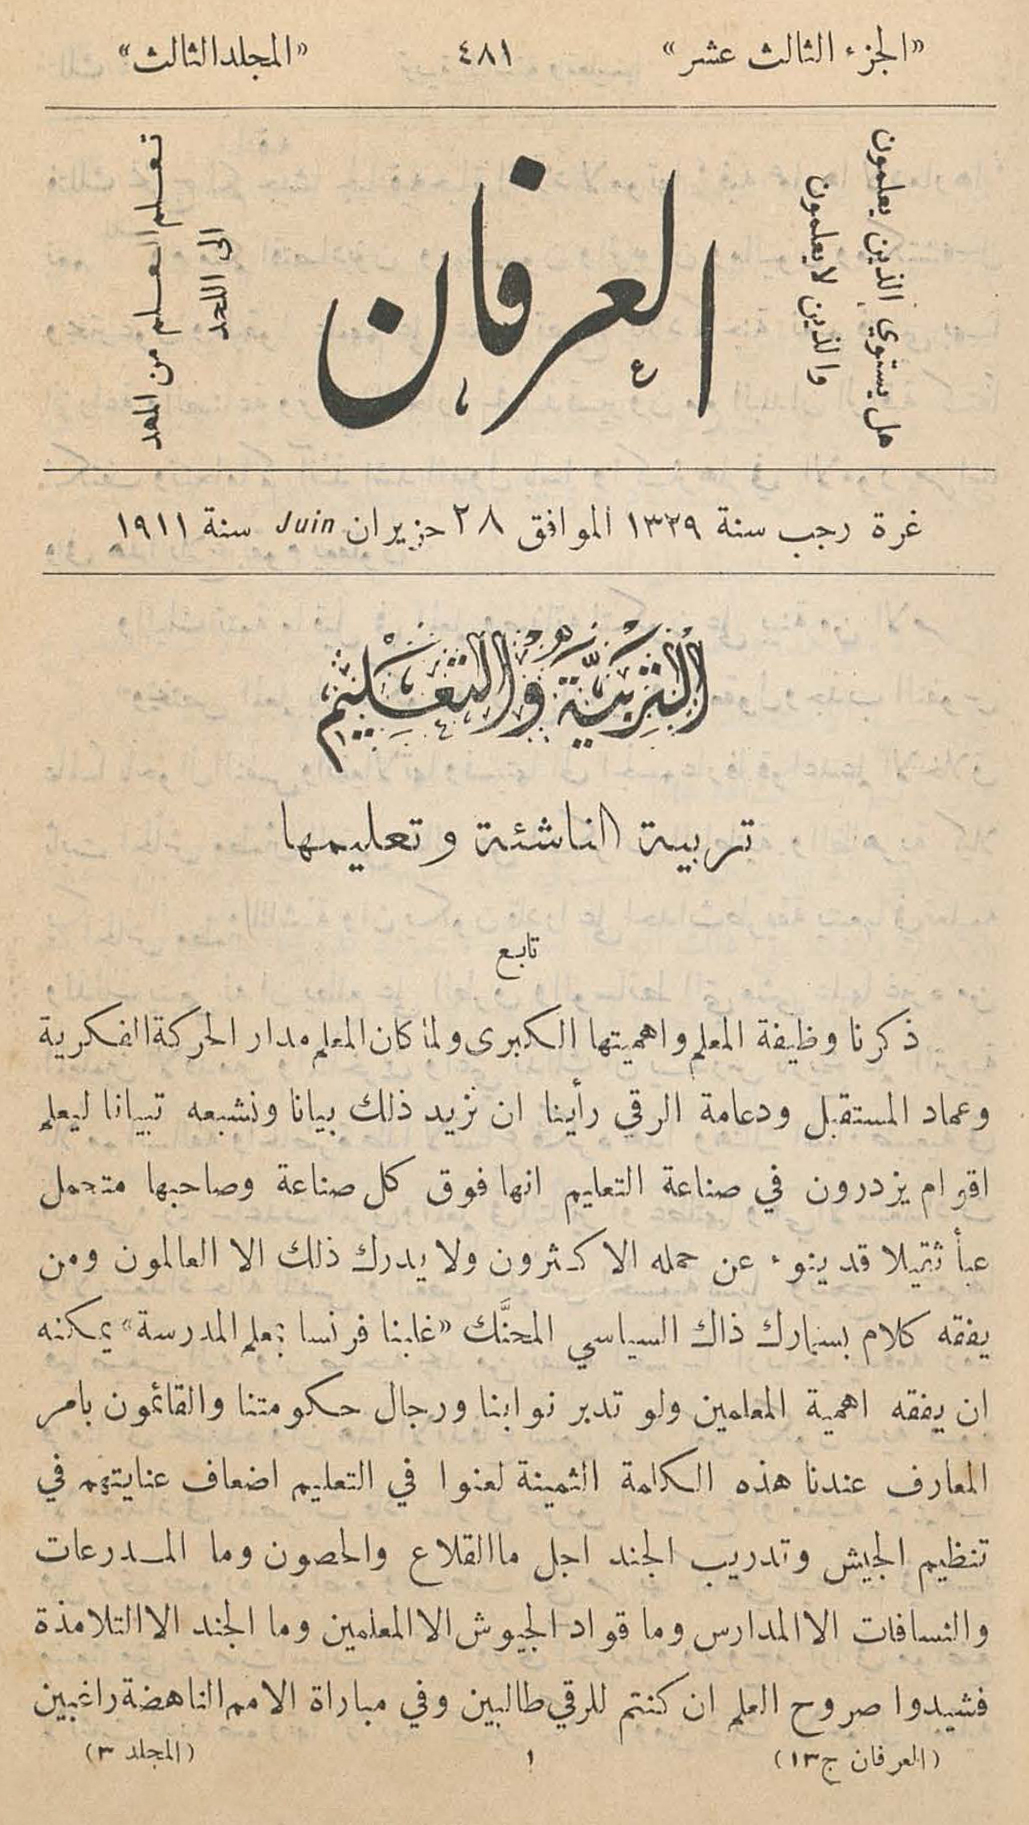 «الجزء الثالث عشر» ٤٨١ «المجلد الثالث»
هل يستوي الذين يعلمون
والذين لا يعلمون
العرفان
تعلم العلم من المهد
الى اللحد
غرة رجب سنة ١٣٢٩ الموافق ٢٨ حزيران Juin سنة ١٩١١
التربية والتعليم
تربية الناشئة وتعليمها
تابع
ذكرنا وظيفة المعلم واهميتها الكبرى ولما كان المعلم مدار الحركة الفكرية
وعماد المستقبل ودعامة الرقي رأينا ان نزيد ذلك بيانا ونشبعه تبيانا ليعلم
اقوام يزدرون في صناعة التعليم انها فوق كل صناعة وصاحبها متحمل
عبأ ثقيلا قد ينوء عن حمله الاكثرون ولا يدرك ذلك الا العالمون ومن
يفقه كلام بسمارك ذاك السياسي المحنَّك «غلبنا فرنسا بمعلم المدرسة» يمكنه
ان يفقه اهمية المعلمين ولو تدبر نوابنا ورجال حكومتنا والقائمون بامر
المعارف عندنا هذه الكلمة الثمينة لعنوا في التعليم اضعاف عنايتهم في
تنظيم الجيش وتدريب الجند اجل ما القلاع والحصون وما المدرعات
والنسافات الا المدارس وما قواد الجيوش الا المعلمين وما الجند الا التلامذة
فشيدوا صروح العلم ان كنتم للرقي طالبين وفي مباراة الامم الناهضة راغبين
(العرفان ج١٣) ١ (المجلد ٣)